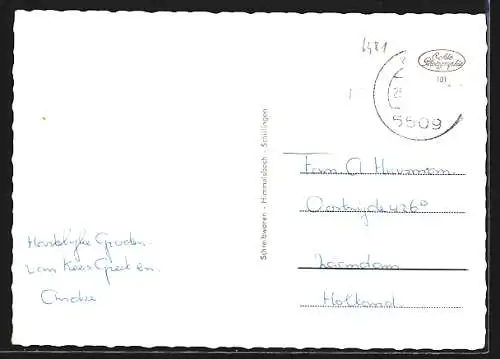 6481
Echte Photographie
101
5509
Schreibwaren - Himmelsbach - Schillingen
Fam. A Huisman
Oostzijde 426°
Zaandam
Holland
Hartelijke Groeten
van Kees Greet en
Andre